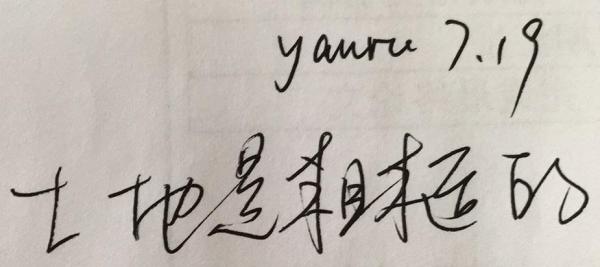 yanru 7.19
土地是粗糙的